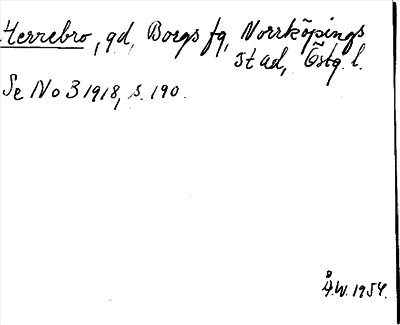 Herrebro, gd, Borgs fg, Norrköpings
stad, Östg. l.
Se No 3 1918, s. 190.
Å.W. 1954.